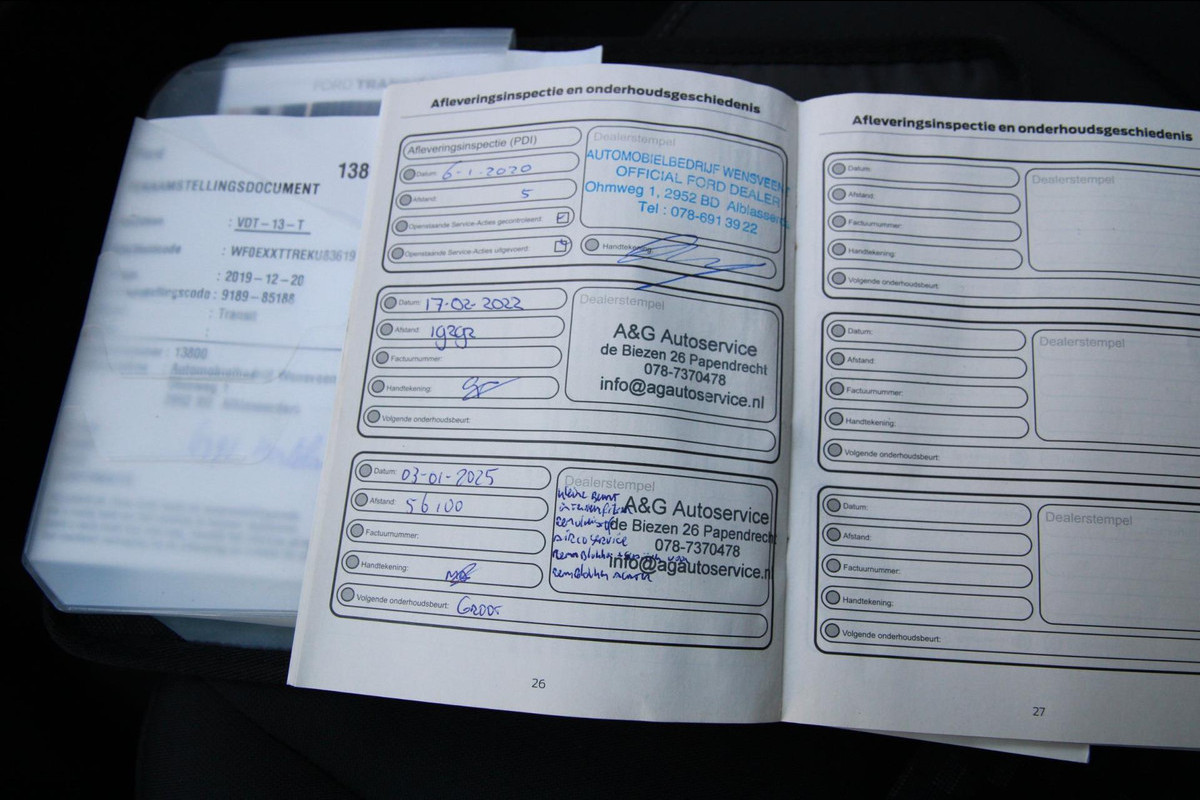 FORD TRA
138
TENAAMSTELLINGSDOCUMENT
: VDT-13-T
: WF0EXXTTREKU83619
: 2019-12-20
: 9189-85188
: Transit
: 13800
Afleveringsinspectie en onderhoudsgeschiedenis
Afleveringsinspectie (PDI)
Datum: 6-1-2020
Afstand: 5
Openstaande Service-Acties gecontroleerd:
Openstaande Service-Acties uitgevoerd:
Dealerstempel
AUTOMOBIELBEDRIJF WENSVEEN
OFFICIAL FORD DEALER
Ohmweg 1, 2952 BD Alblasser
Tel : 078-691 39 22
Handtekening:
Datum: 17-02-2022
Afstand: 19292
Factuurnummer:
Handtekening:
Volgende onderhoudsbeurt:
Dealerstempel
A&G Autoservice
de Biezen 26 Papendrecht
078-7370478
info@agautoservice.nl
Datum: 03-01-2025
Afstand: 56100
Factuurnummer:
Handtekening:
Volgende onderhoudsbeurt: GROOT
Dealerstempel
kleine Beurt
A&G Autoservice
de Biezen 26 Papendrecht
airco service
078-7370478
info@agautoservice.n
26
Afleveringsinspectie en onderhoudsgeschiedenis
Datum:
Afstand:
Factuurnummer:
Handtekening:
Volgende onderhoudsbeurt:
Dealerstempel
Datum:
Afstand:
Factuurnummer:
Handtekening:
Volgende onderhoudsbeurt:
Dealerstempel
Datum:
Afstand:
Factuurnummer:
Handtekening:
Volgende onderhoudsbeurt:
Dealerstempel
27